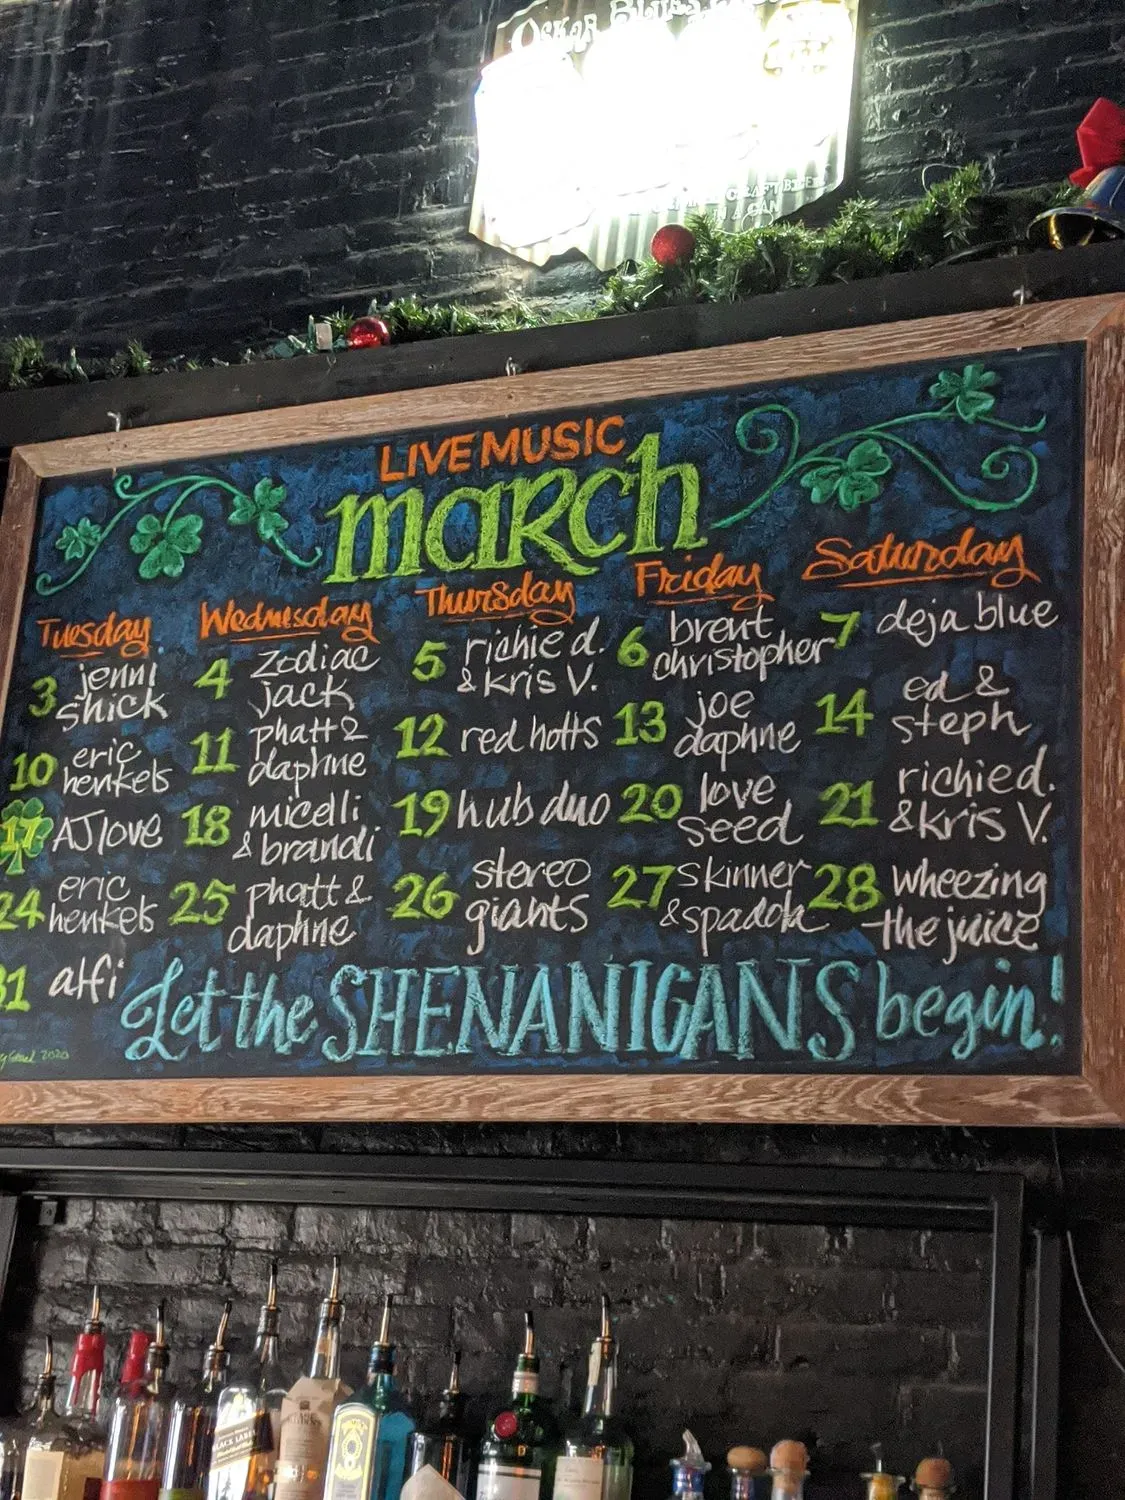 Oskar Blues
CRAFT BEER
LIVE MUSIC
march
Tuesday Wednesday Thursday Friday Saturday
3 jenni shick
4 zodiac jack
5 richie d. & kris V.
6 brent christopher
7 deja blue
10 eric henkels
11 phatt & daphne
12 red hotts
13 joe daphne
14 ed & steph
17 AJ love
18 micelli & brandi
19 hub duo
20 love seed
21 richie d. & kris V.
24 eric henkels
25 phatt & daphne
26 stereo giants
27 skinner & spadola
28 wheezing the juice
31 alfi
Let the SHENANIGANS begin!
2020
BLACK LABEL